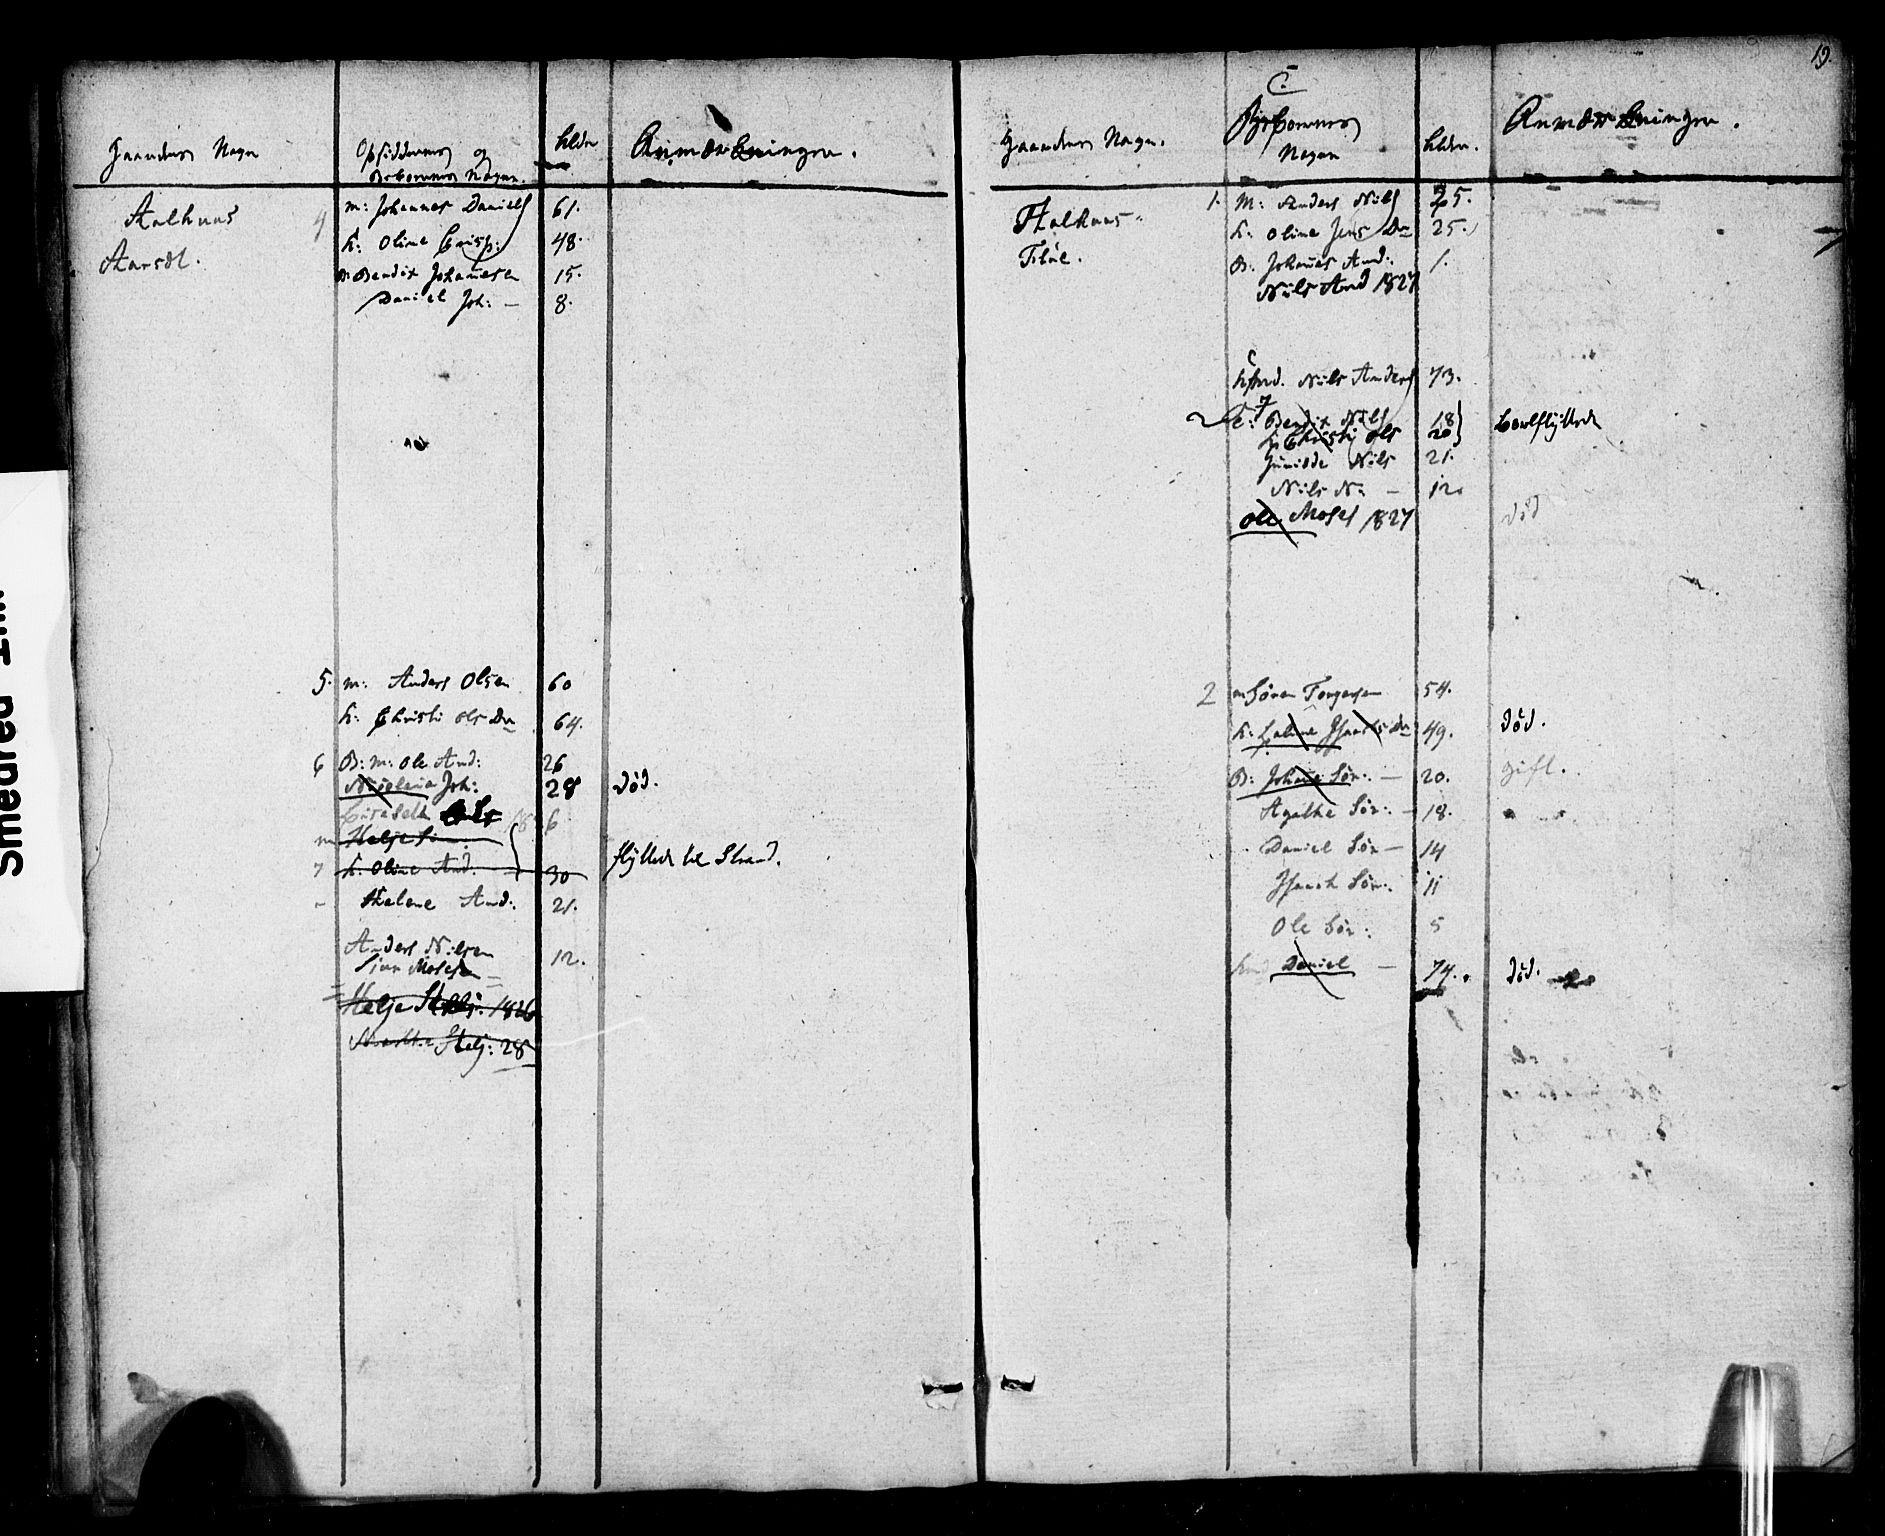 19.
Gaardens Navn
Opsiddernes og
Beboernes Navne.
Alder
Anmærkninger.
Aalhuus
Aarsdl.
4 M: Johannes Daniels 61.
K: Oline Crisp: 48.
B: Bendix Johanesen 15.
Daniel Joh: — 8.
5. M: Anders Olsen 60
K. Christi Ols Dr 64.
6 B: M: Ole And: 26
Nicolena Joh: 28 død.
6
M Helje
7 K. Oline And. 30 flyttede til Strand.
- Helene And: 21.
Anders Nilsen 12.
Sjur Mosesen
Helje 1826
Marthe Helj: 28
Gaardens Navn.
C.
Beboernes
Navne
Alder.
Anmærkninger.
Aalhuus.
Tiløe.
1. M: Anders Nils 25.
K: Oline Jens Dr 25.
B: Johanes And: 1.
Nils And 1827
Nils Anders 73.
2 Bendix Nils 18 bortflyttede
Christi Ols 20
Gunilde Nils 21.
Nils N: — 12.
Ole Moses 1827 død
2 M Søren Torgersen 54.
K: Isaachs Dr 49. død.
B: Johane Sør: — 20. gift.
Agathe Sør: — 18.
Daniel Sør — 14
Isaach Sør: 11
Ole Sør: 5
Daniel — 74. død.
Smedred